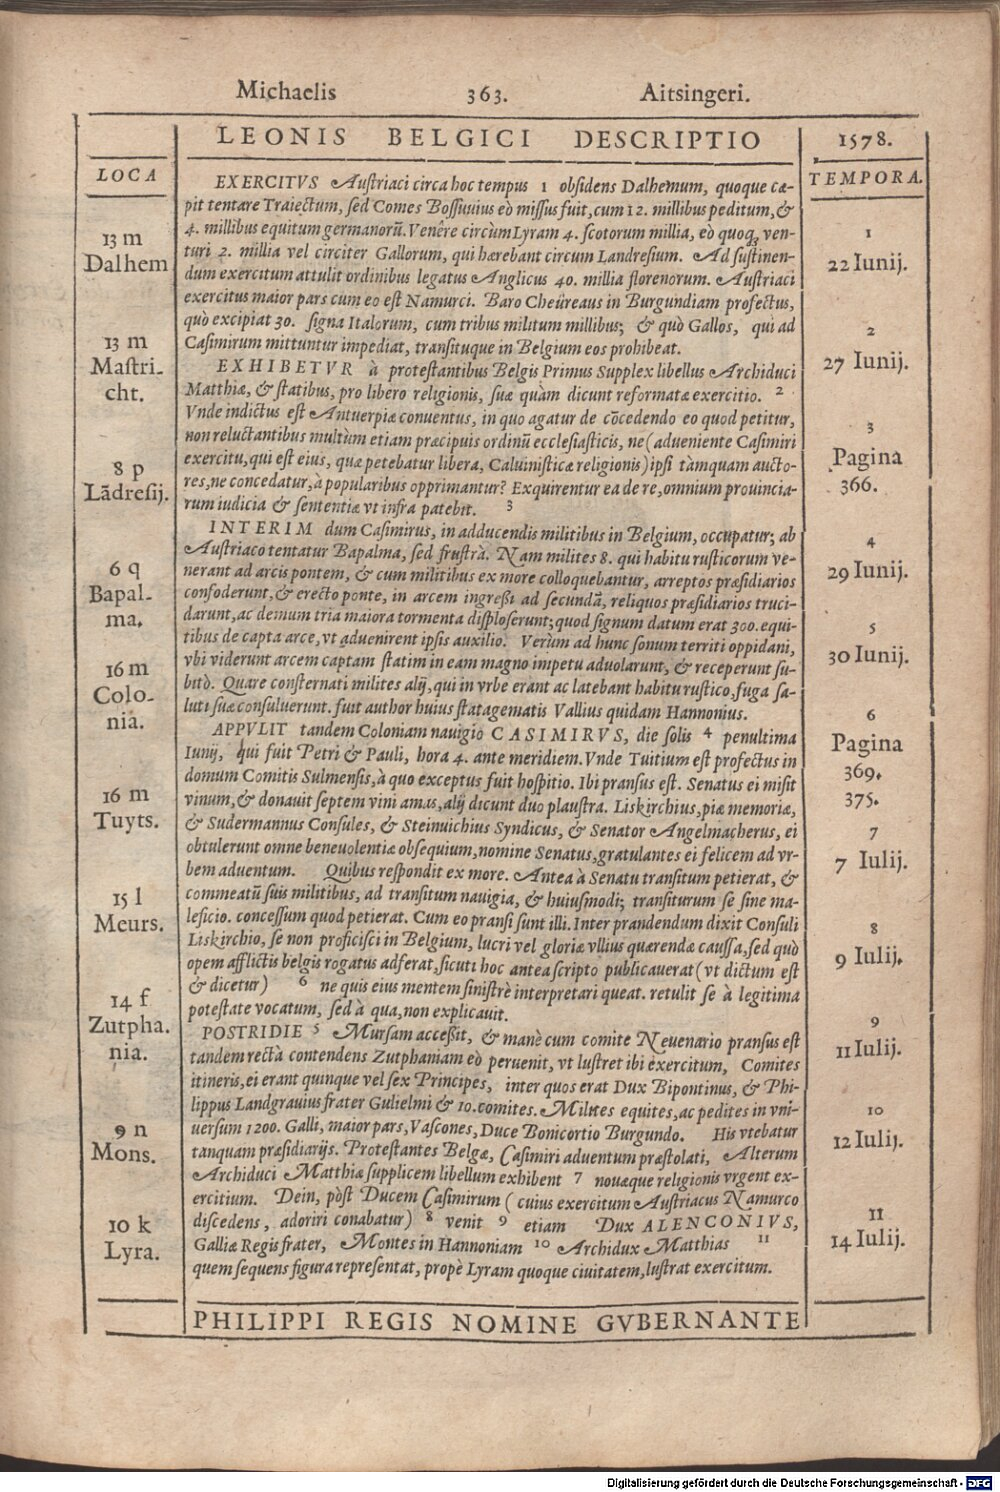 Michaelis 363. Aitsingeri.
LEONIS BELGICI DESCRIPTIO
1578.
LOCA
TEMPORA.
13 m
Dalhem
13 m
Maſtri-
cht.
8 p
Lãdreſij.
6 q
Bapal-
ma.
16 m
Colo-
nia.
16 m
Tuyts.
15 l
Meurs.
14 f
Zutpha.
nia.
9 n
Mons.
10 k
Lyra.
EXERCITVS Auſtriaci circa hoc tempus 1 obſidens Dalhemum, quoque cæ-
pit tentare Traiectum, ſed Comes Boſſuuius eò miſſus fuit, cum 12. millibus peditum, &
4. millibus equitum germanorũ. Venêre circùm Lyram 4. ſcotorum millia, eò quoq; ven-
turi 2. millia vel circiter Gallorum, qui hærebant circum Landreſium. Ad ſuſtinen-
dum exercitum attulit ordinibus legatus Anglicus 40. millia florenorum. Auſtriaci
exercitus maior pars cum eo eſt Namurci. Baro Cheüreaus in Burgundiam profectus,
quò excipiat 30. ſigna Italorum, cum tribus militum millibus; & quò Gallos, qui ad
Caſimirum mittuntur impediat, tranſituque in Belgium eos prohibeat.
EXHIBETVR à proteſtantibus Belgis Primus Supplex libellus Archiduci
Matthiæ, & ſtatibus, pro libero religionis, ſuæ quàm dicunt reformatæ exercitio. 2
Vnde indictus eſt Antuerpiæ conuentus, in quo agatur de cõcedendo eo quod petitur,
non reluctantibus multùm etiam præcipuis ordinũ eccleſiaſticis, ne (adueniente Caſimiri
exercitu, qui eſt eius, quæ petebatur libera, Caluiniſticæ religionis) ipſi tàmquam aucto-
res, ne concedatur, à popularibus opprimantur? Exquirentur ea de re, omnium prouincia-
rum iudicia & ſententiæ vt infra patebit. 3
INTERIM dum Caſimirus, in adducendis militibus in Belgium, occupatur; ab
Auſtriaco tentatur Bapalma, ſed fruſtrà. Nam milites 8. qui habitu ruſticorum ve-
nerant ad arcis pontem, & cum militibus ex more colloquebantur, arreptos præſidiarios
confoderunt, & erecto ponte, in arcem ingreſſi ad ſecundã, reliquos præſidiarios truci-
darunt, ac demum tria maiora tormenta diſploſerunt; quod ſignum datum erat 300. equi-
tibus de capta arce, vt aduenirent ipſis auxilio. Verùm ad hunc ſonum territi oppidani,
vbi viderunt arcem captam ſtatim in eam magno impetu aduolarunt, & receperunt ſu-
bitò. Quare conſternati milites alij, qui in vrbe erant ac latebant habitu ruſtico, fuga ſa-
luti ſuæ conſuluerunt. fuit author huius ſtatagematis Vallius quidam Hannonius.
APPVLIT tandem Coloniam nauigio CASIMIRVS, die ſolis 4 penultima
Iunij, qui fuit Petri & Pauli, hora 4. ante meridiem. Vnde Tuitium eſt profectus in
domum Comitis Sulmenſis, à quo exceptus fuit hoſpitio. Ibi pranſus eſt. Senatus ei miſit
vinum, & donauit ſeptem vini amas, alij dicunt duo plauſtra. Liskirchius, piæ memoriæ,
& Sudermannus Conſules, & Steinuichius Syndicus, & Senator Angelmacherus, ei
obtulerunt omne beneuolentiæ obſequium, nomine Senatus, gratulantes ei felicem ad vr-
bem aduentum. Quibus reſpondit ex more. Antea à Senatu tranſitum petierat, &
commeatũ ſuis militibus, ad tranſitum nauigia, & huiuſmodi; tranſiturum ſe ſine ma-
leficio. conceſſum quod petierat. Cum eo pranſi ſunt illi. Inter prandendum dixit Conſuli
Liskirchio, ſe non proficiſci in Belgium, lucri vel gloriæ vllius quærendæ cauſſa, ſed quò
opem afflictis belgis rogatus adferat, ſicuti hoc antea ſcripto publicauerat (vt dictum eſt
& dicetur) 6 ne quis eius mentem ſiniſtrè interpretari queat. retulit ſe à legitima
poteſtate vocatum, ſed à qua, non explicauit.
POSTRIDIE 5 Murſam acceſſit, & manè cum comite Neuenario pranſus eſt
tandem rectà contendens Zutphaniam eò peruenit, vt luſtret ibi exercitum, Comites
itineris, ei erant quinque vel ſex Principes, inter quos erat Dux Bipontinus, & Phi-
lippus Landgrauius frater Gulielmi & 10. comites. Milites equites, ac pedites in vni-
uerſum 1200. Galli, maior pars, Vaſcones, Duce Bonicortio Burgundo. His vtebatur
tanquam præſidiarijs. Proteſtantes Belgæ, Caſimiri aduentum præſtolati, Alterum
Archiduci Matthiæ ſupplicem libellum exhibent 7 nouæque religionis vrgent ex-
ercitium. Dein, pòſt Ducem Caſimirum (cuius exercitum Auſtriacus Namurco
diſcedens, adoriri conabatur) 8 venit 9 etiam Dux ALENCONIVS,
Galliæ Regis frater, Montes in Hannoniam 10 Archidux Matthias 11
quem ſequens figura repreſentat, propè Lyram quoque ciuitatem, luſtrat exercitum.
1
22 Iunij.
2
27 Iunij.
3
Pagina
366.
4
29 Iunij.
5
30 Iunij.
6
Pagina
369.
375.
7
7 Iulij.
8
9 Iulij.
9
11 Iulij.
10
12 Iulij.
11
14 Iulij.
PHILIPPI REGIS NOMINE GVBERNANTE
Digitalisierung gefördert durch die Deutsche Forschungsgemeinschaft - DFG